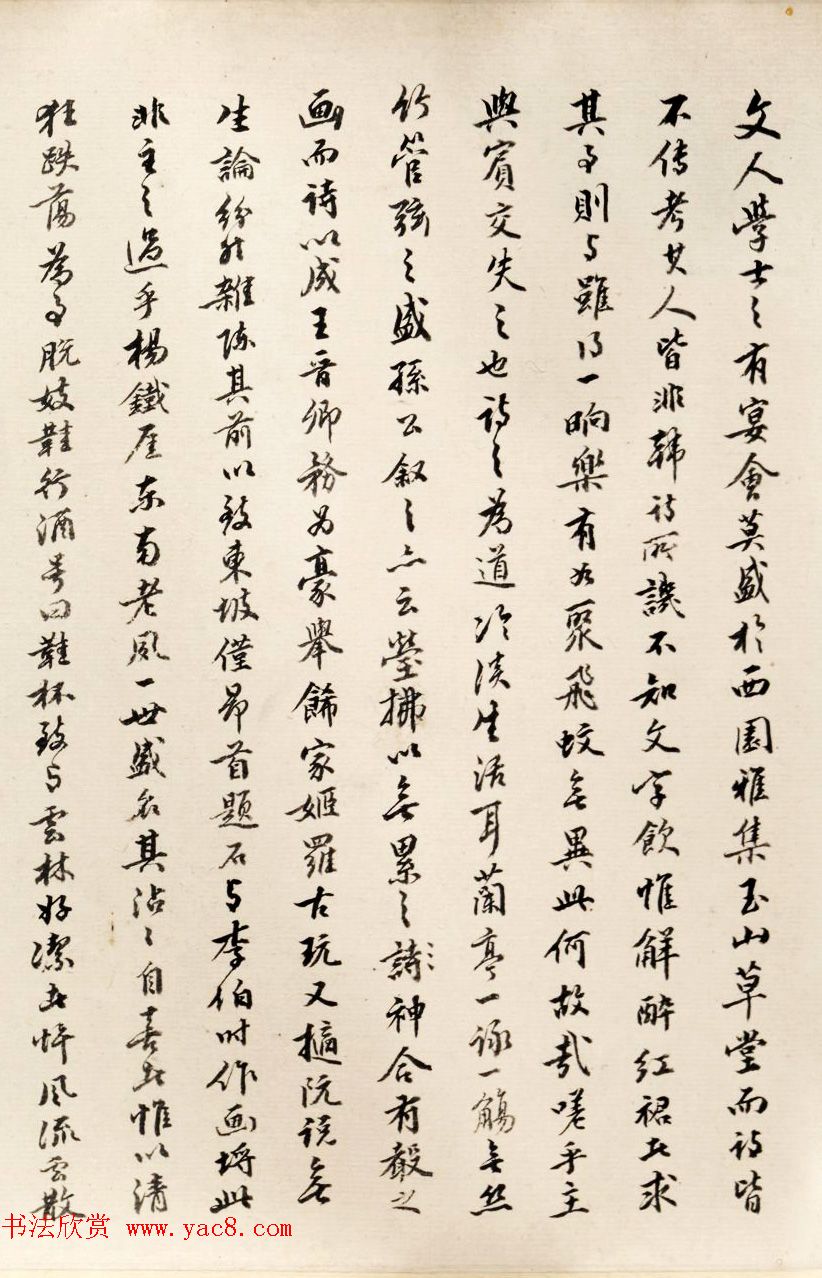 文人學士之有宴會莫盛於西園雅集玉山草堂而詩皆
不传考其人皆非韩詩所譏不知文字飲惟解醉紅裙者求
其事則与雖得一晌樂有如聚飛蚊無異此何故哉嗟乎主
與賓交失之也詩之為道冷淡生活耳蘭亭一詠一觴無絲
竹管弦之盛孫公叙之亦云瑩拂以無累之詩神合有聲之
画而詩以成王晋卿務为豪舉飾家姬羅古玩又摭阮说無
生論紛然雜陈其前以致東坡僅昂首題石与李伯时作画埒此
非主之過乎楊鐵崖东南老风一世盛名其沾沾自喜者惟以清
狂跌蕩為事脱妓鞋行酒号曰鞋杯致与雲林好潔者忤风流雲散
书法欣赏 www.yac8.com